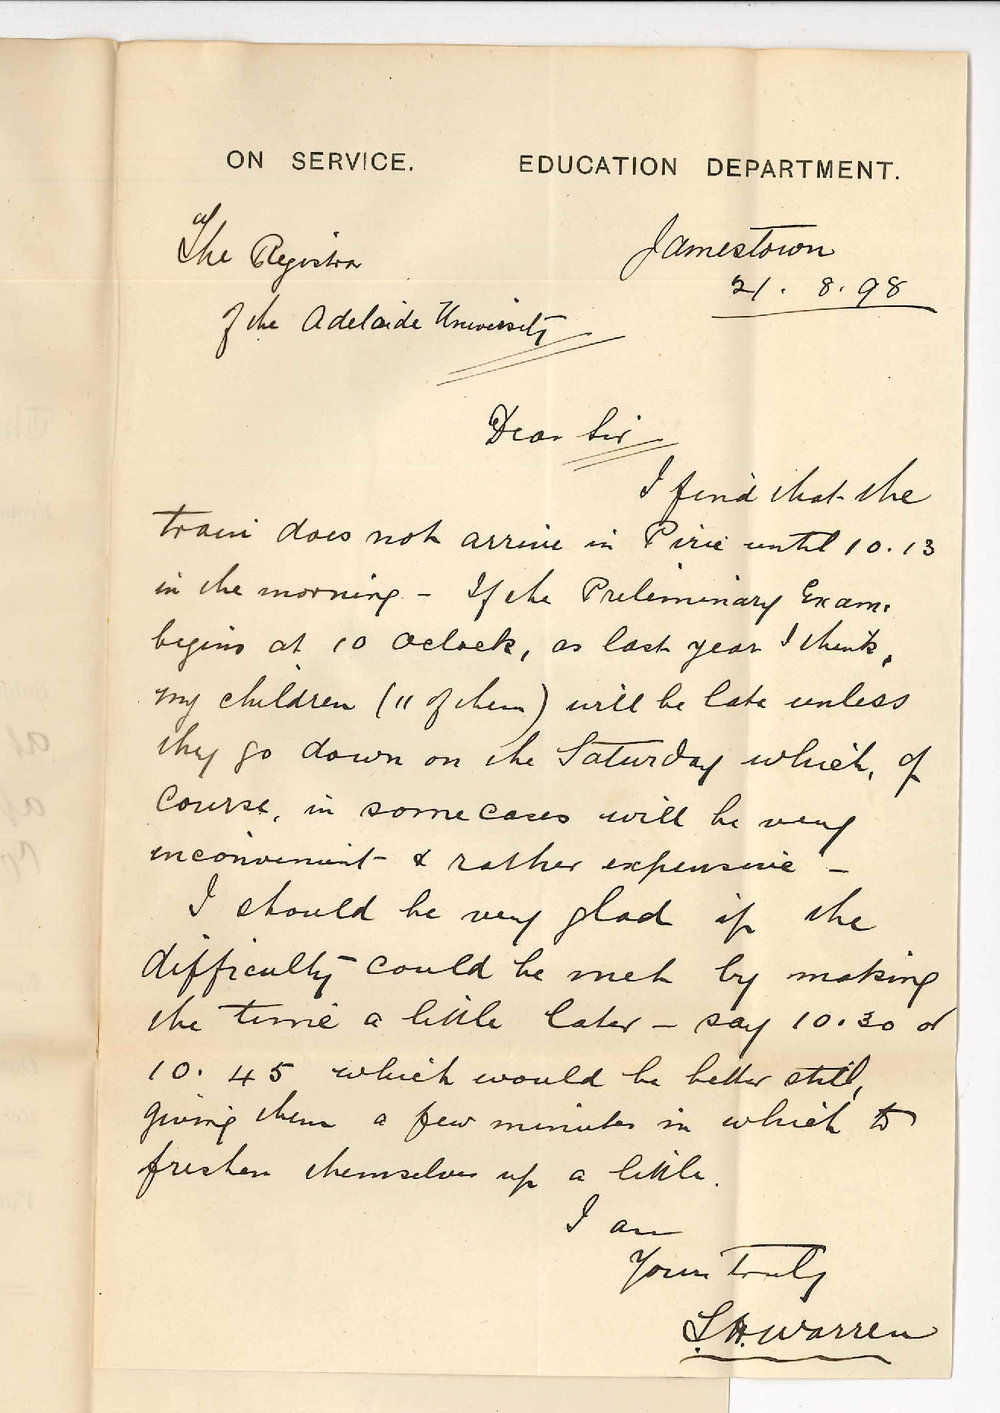 ON SERVICE. EDUCATION DEPARTMENT.
The Registrar
Jamestown
21. 8. 98
of the Adelaide University
Dear Sir
I find that the
train does not arrive in Pirie until 10.13
in the morning - If the Preliminary Exam.
begins at 10 oclock, as last year I think,
my children (11 of them) will be late unless
they go down on the Saturday which, of
course, in some cases will be very
inconvenient & rather expensive -
I should be very glad if the
difficulty could be met by making
the time a little later - say 10.30 or
10.45 which would be better still,
giving them a few minutes in which to
freshen themselves up a little.
I am
Yours truly
S. H. Warren